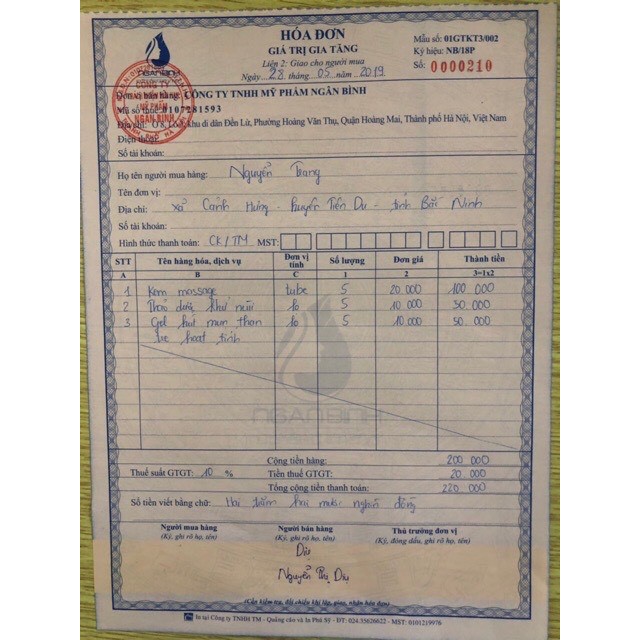 HÓA ĐƠN
GIÁ TRỊ GIA TĂNG
Liên 2: Giao cho người mua
Ngày 28 tháng 05 năm 2019
Mẫu số: 01GTKT3/002
Ký hiệu: NB/18P
Số: 0000210
NGANBINH
CÔNG TY
MỸ PHẨM
NGÂN BÌNH
Đơn vị bán hàng: CÔNG TY TNHH MỸ PHẨM NGÂN BÌNH
Mã số thuế: 0107281593
Địa chỉ: Ô 8, Lô 6, khu di dân Đền Lừ, Phường Hoàng Văn Thụ, Quận Hoàng Mai, Thành phố Hà Nội, Việt Nam
Điện thoại:
Số tài khoản:
Họ tên người mua hàng: Nguyễn Trang
Tên đơn vị:
Địa chỉ: xã Cảnh Hưng - Huyện Tiên Du - tỉnh Bắc Ninh
Số tài khoản:
Hình thức thanh toán: CK/TM MST:
STT Tên hàng hóa, dịch vụ Đơn vị tính Số lượng Đơn giá Thành tiền
A B C 1 2 3=1x2
1 Kem massage tube 5 20.000 100.000
2 Thảo dược khử mùi lo 5 10.000 50.000
3 Gel hút mụn than lo 5 10.000 50.000
tre hoạt tính
NGANBINH
Cộng tiền hàng: 200 000
Thuế suất GTGT: 10 % Tiền thuế GTGT: 20.000
Tổng cộng tiền thanh toán: 220 000
Số tiền viết bằng chữ: Hai trăm hai mươi nghìn đồng
Người mua hàng Người bán hàng Thủ trưởng đơn vị
(Ký, ghi rõ họ, tên) (Ký, ghi rõ họ, tên) (Ký, đóng dấu, ghi rõ họ, tên)
Dịu
Nguyễn Thị Dịu
(Cần kiểm tra, đối chiếu khi lập, giao, nhận hóa đơn)
In tại Công ty TNHH TM - Quảng cáo và In Phú Sỹ - ĐT: 024.35626622 - MST: 0101219976